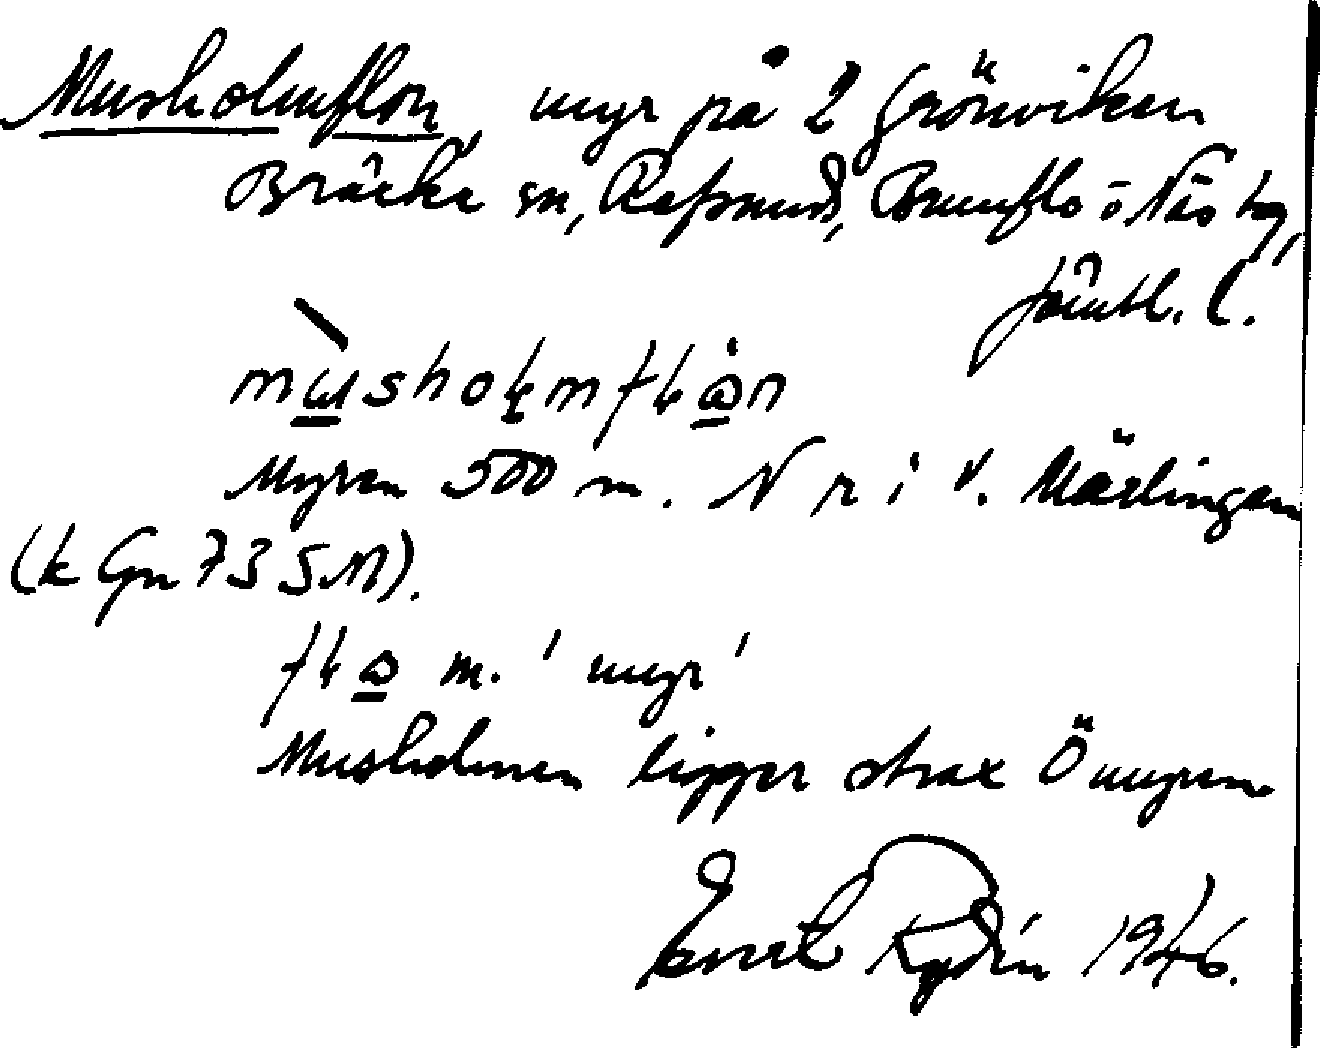 Musholmflon, myr på 2 Grönviken
Bräcke sn, Refsund, Brunflo o Näs tg,
Jämtl. l.
musholmflån
Myren 500 m. N r i V. Märlingen
(k Gn 73 SM).
flå m. 'myr'
Musholmen ligger strax Ö myren
Evert Rydin 1946.